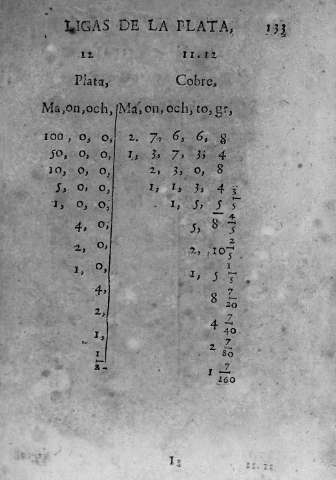 LIGAS DE LA PLATA, 133
12 11.12
Plata, Cobre,
Ma, on, och, Ma, on, och, to, gr,
100, 0, 0, 2. 7, 6, 6, 8
50, 0, 0, 1, 3, 7, 3, 4
10, 0, 0, 2, 3, 0, 8
5, 0, 0, 1, 1, 3, 4
1, 0, 0, 1, 5, 5 3/5
4, 0, 5, 8 4/5
2, 0, 2, 10 2/5
1, 0, 1, 5 1/5
4, 8 7/20
2, 4 7/40
1, 2 7/80
1/2 1 7/160